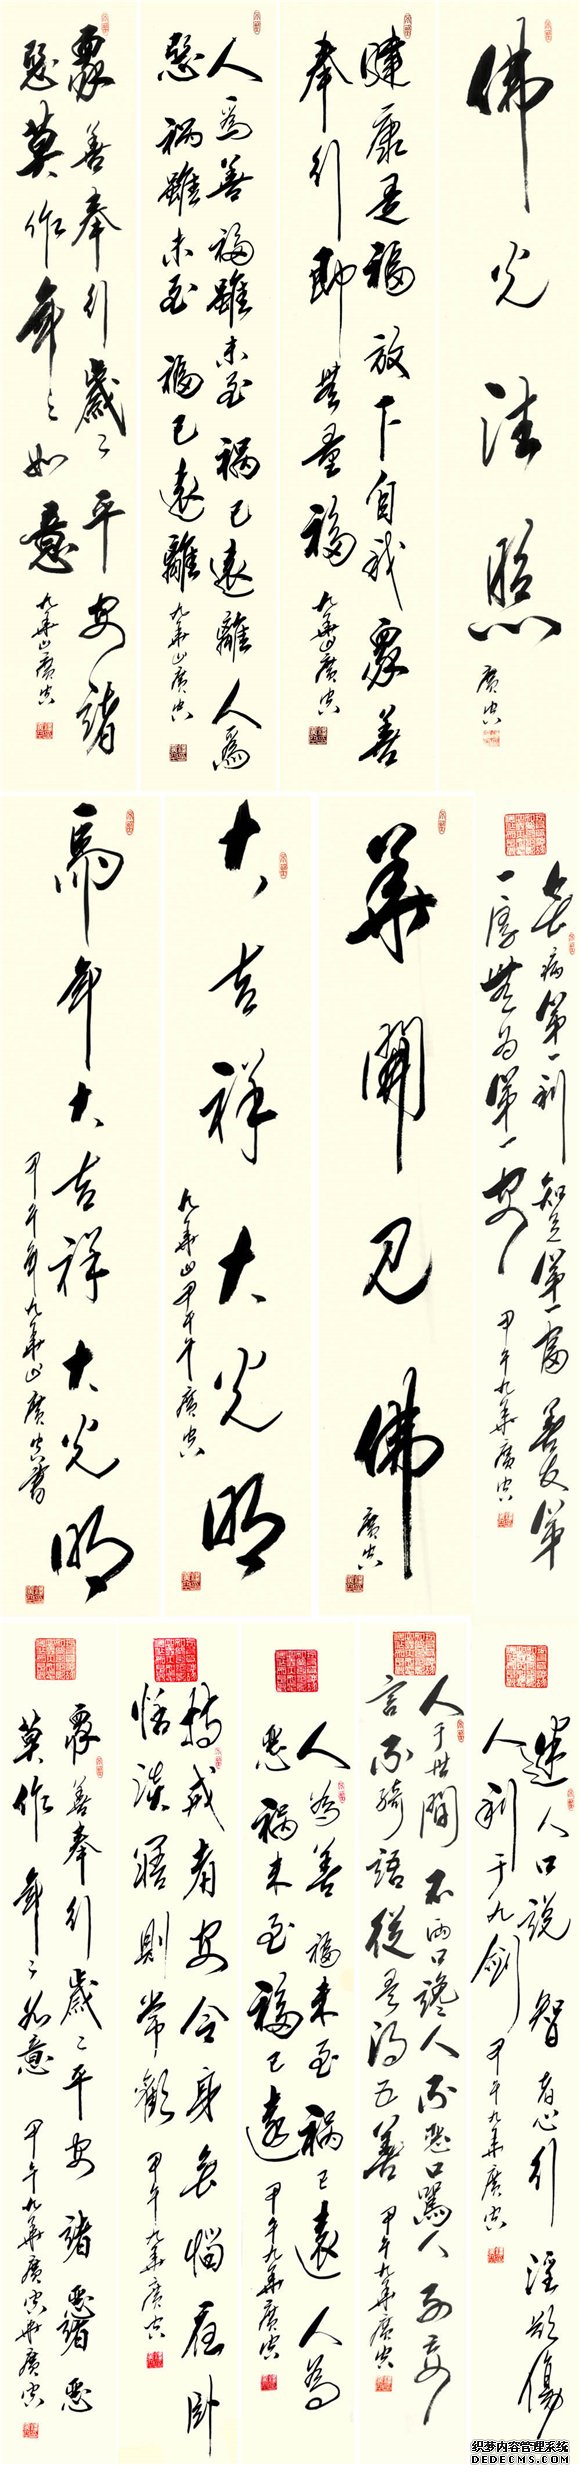 佛光法照
廣空
健康是福放下自我眾善
奉行助無量福
九華山廣空
人為善福雖未至禍已遠離人為
惡禍雖未至福已遠離
九華山廣空
眾善奉行歲々平安諸
惡莫作年々如意
九華山廣空
無病第一利知足第一富善友第
一厚無為第一安
甲午九華廣空
華開見佛
廣空
大吉祥大光明
九華山甲午年廣空
馬年大吉祥大光明
甲午年九華山廣空書
迷人口說智者心行淫欲傷
人利于九劍
甲午九華廣空
人于世間不兩口讒人不惡口罵人不妄
言不綺語從是得五善
甲午九華廣空
人為善福未至禍已遠人為
惡禍未至福已遠
甲午九華廣空
持戒者安令身無惱在臥
恬淡寤則常歡
甲午九華廣空
眾善奉行歲々平安諸惡諸惡
莫作年々如意
甲午九華廣空
廣空
织梦内容管理系统
DEDECMS.COM